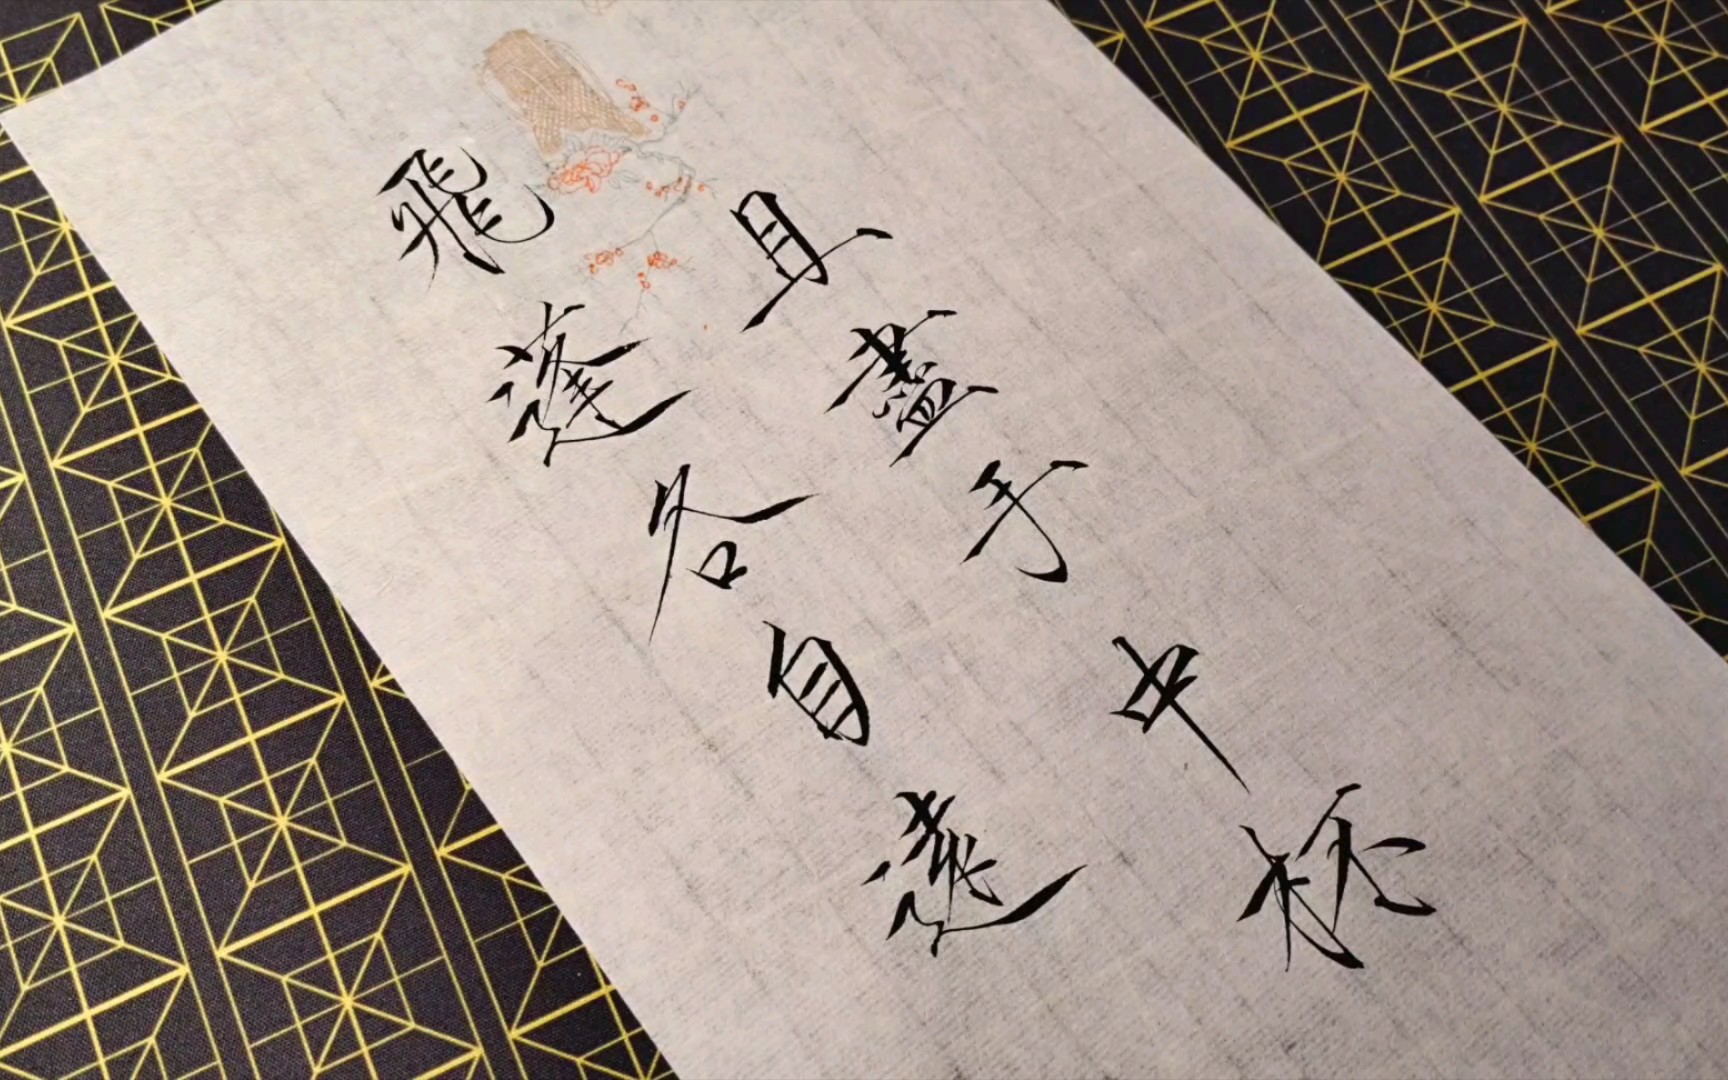 飛蓬各自遠
且盡手中杯